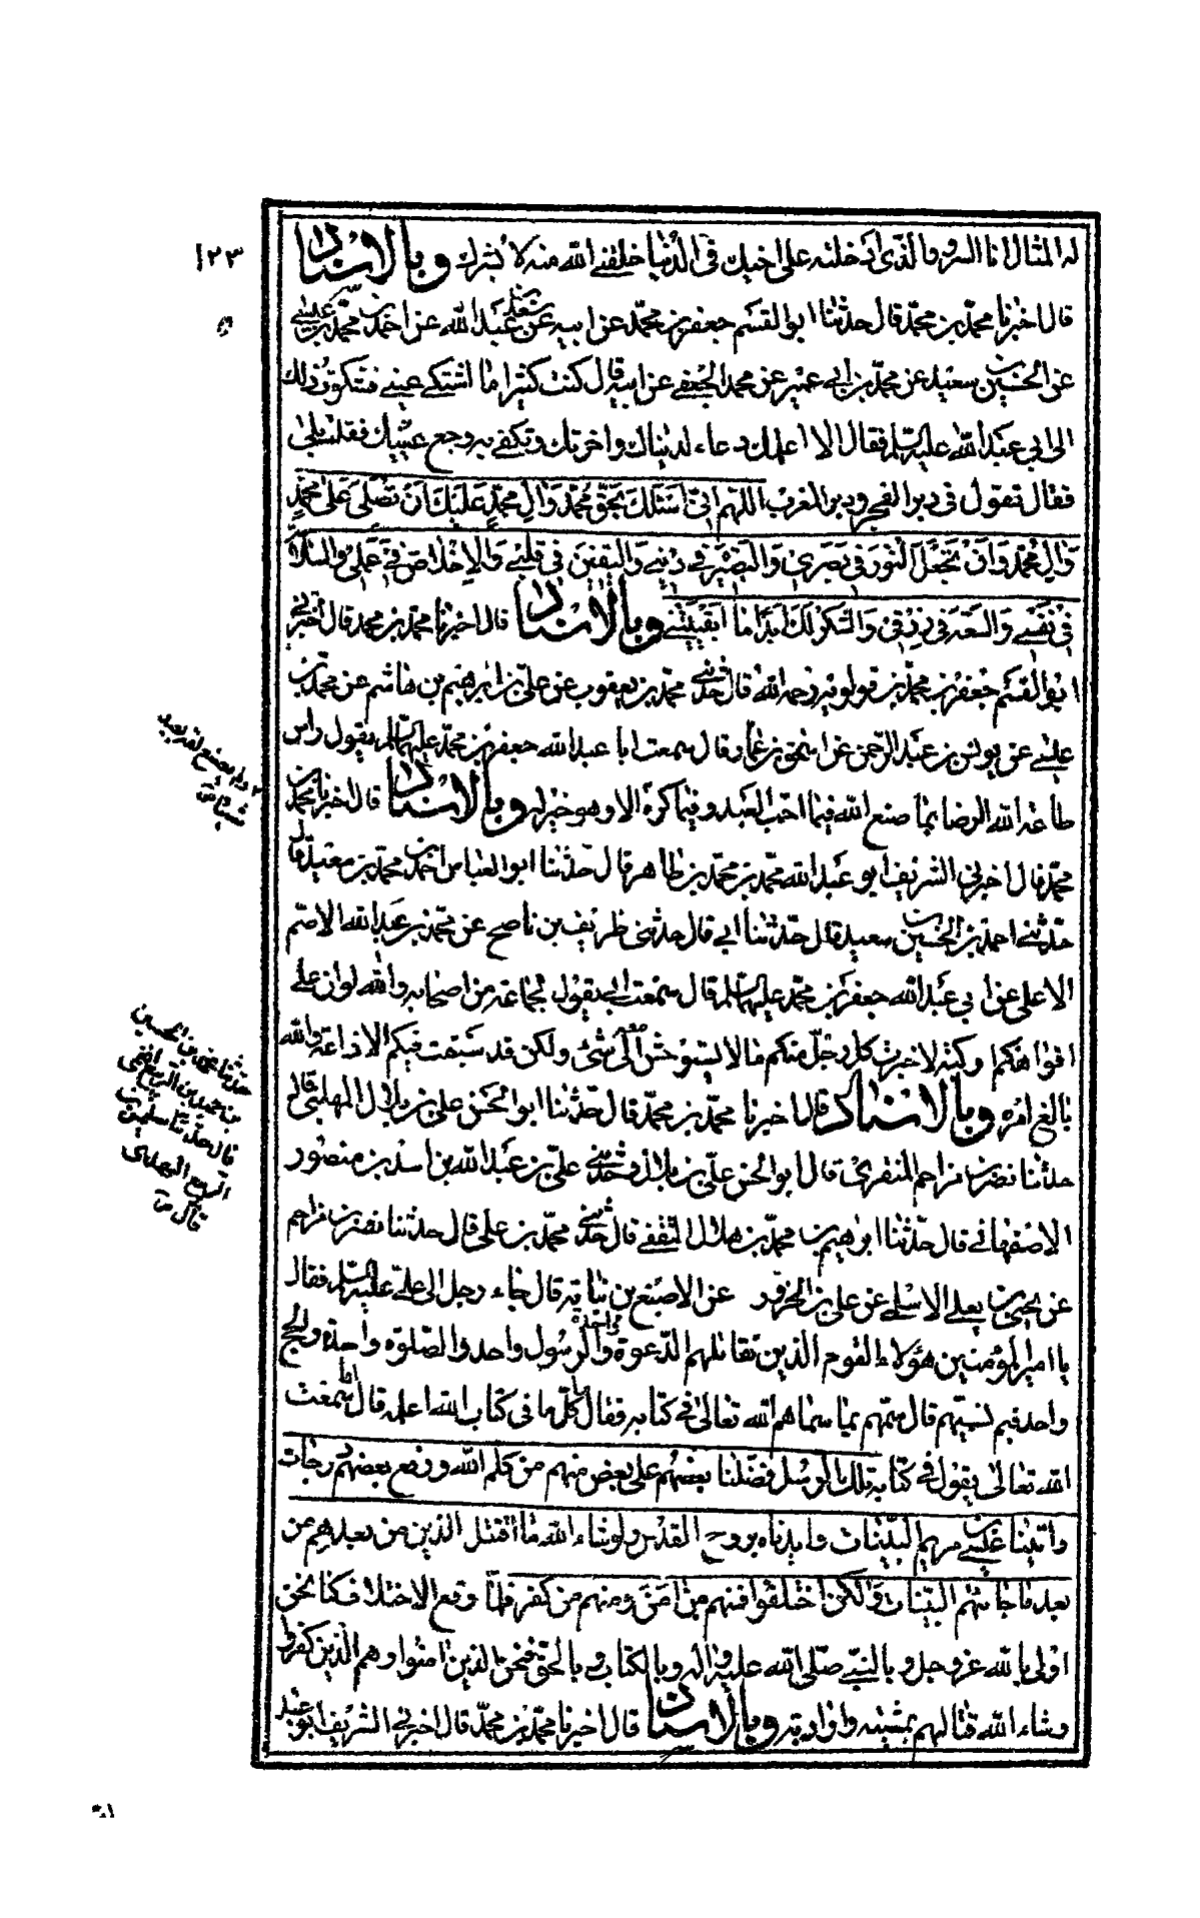 ١٢٣
له المثال انا السرور الذي ادخلته على اخيك في الدنيا خلقني الله منه لابشرك وبالاسناد
قال اخبرنا محمد بن محمد قال حدثنا ابو القسم جعفر بن محمد عن ابيه عن سعد بن عبد الله عن احمد بن محمد بن عيسى
عن الحسين بن سعيد عن محمد بن ابي عمير عن محمد الجعفي عن ابيه قال كنت كثيرا ما اشتكي عيني فشكوت ذلك
الى ابي عبد الله عليه السلم فقال الا اعلمك دعاء لدنياك واخرتك وتكفى به وجع عينيك فقلت بلى
فقال تقول في دبر الفجر ودبر المغرب اللهم اني اسئلك بحق محمد وال محمد عليك ان تصلي على محمد
وال محمد وان تجعل النور في بصري والبصيرة في ديني واليقين في قلبي والاخلاص في عملي والسلامة
في نفسي والسعة في رزقي والشكر لك ابدا ما ابقيتني وبالاسناد قال اخبرنا محمد بن محمد قال اخبرني
ابو القسم جعفر بن محمد بن قولويه رحمه الله قال حدثني محمد بن يعقوب عن علي بن ابرهيم بن هاشم عن محمد بن
عيسى عن يونس بن عبد الرحمن عن اسحق بن عمار قال سمعت ابا عبد الله جعفر بن محمد عليهما السلم يقول راس
طاعة الله الرضا بما صنع الله فيما احب العبد وفيما كره الا وهو خير له وبالاسناد قال اخبرنا محمد بن
محمد قال اخبرني الشريف ابو عبد الله محمد بن محمد بن طاهر قال حدثنا ابو العباس احمد بن محمد بن سعيد قال
حدثني احمد بن الحسين بن سعيد قال حدثنا ابي قال حدثني ظريف بن ناصح عن محمد بن عبد الله الاصم
الاعلى عن ابي عبد الله جعفر بن محمد عليهما السلم قال سمعت ابي يقول لجماعة من اصحابه والله لو ان على
افواهكم اوكية لاخبرت كل رجل منكم ما لا يستوحش الى شئ ولكن قد سبقت فيكم الاذاعة والله
بالغ امره وبالاسناد قال اخبرنا محمد بن محمد قال حدثنا ابو الحسن علي بن بلال المهلبي قال
حدثنا نصر بن مزاحم المنقري قال ابو الحسن علي بن بلال وحدثني علي بن عبد الله بن اسد بن منصور
الاصفهاني قال حدثنا ابرهيم بن محمد بن هلال الثقفي قال حدثني محمد بن علي قال حدثنا نصر بن مزاحم
عن يحيى بن يعلى الاسلمي عن علي بن الحزور عن الاصبغ بن نباته قال جاء رجل الى علي عليه السلم فقال
يا امير المؤمنين هؤلاء القوم الذين تقاتلهم الدعوة واحدة والرسول واحد والصلوة واحدة والحج
واحد فبم نسميهم قال سمهم بما سماهم الله تعالى في كتابه فقال ما كل ما في كتاب الله اعلمه قال اما سمعت
الله تعالى يقول في كتابه تلك الرسل فضلنا بعضهم على بعض منهم من كلم الله ورفع بعضهم درجات
واتينا عيسى بن مريم البينات وايدناه بروح القدس ولو شاء الله ما اقتتل الذين من بعدهم من
بعد ما جاءتهم البينات ولكن اختلفوا فمنهم من امن ومنهم من كفر فلما وقع الاختلاف كنا نحن
اولى بالله عز وجل وبالنبي صلى الله عليه واله وبالكتاب وبالحق فنحن الذين امنوا وهم الذين كفروا
وشاء الله قتالهم بمشيته وارادته وبالاسناد قال اخبرنا محمد بن محمد قال اخبرني الشريف ابو عبد
ولم يصنع الله بعبد
شيئا
حدثنا محمد بن الحسين
بن حميد بن الربيع اللخمي
قال حدثنا سليمن بن
الربيع النهدي
قال